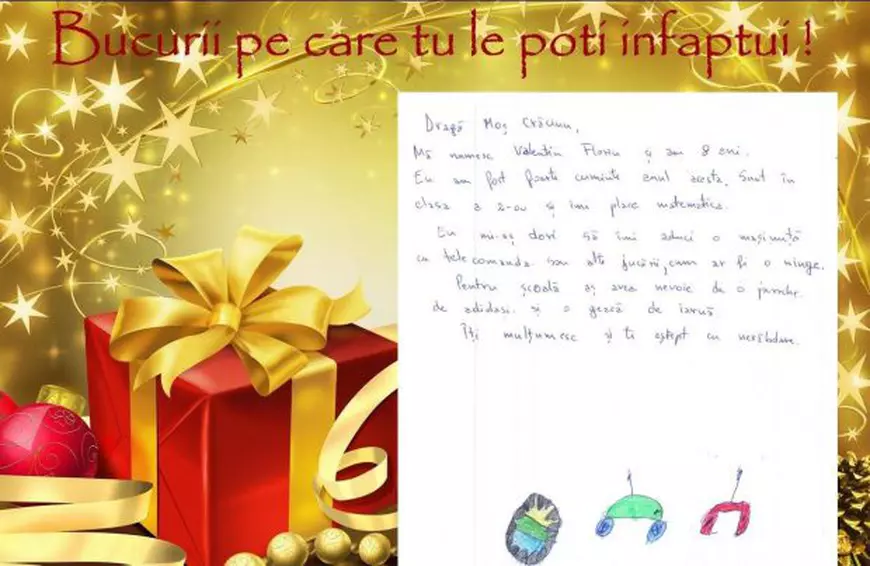 Bucurii pe care tu le poti infaptui !
Dragă Moș Crăciun,
Mă numesc Valentin Florin și am 8 ani.
Eu am fost foarte cuminte anul acesta. Sunt în
clasa a 2-a și îmi place matematica.
Eu mi-aș dori să îmi aduci o mașinuță
cu telecomanda sau alte jucării, cum ar fi o minge.
Pentru școală aș avea nevoie de o pereche
de adidași și o geacă de iarnă
Îți mulțumesc și te aștept cu nerăbdare.